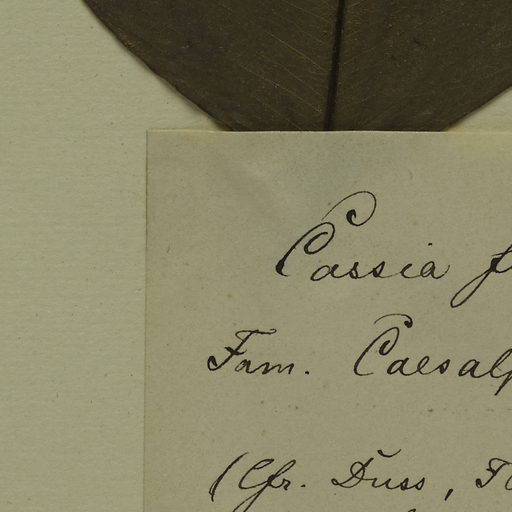 Cassia f
Fam. Caesalp
(Cfr. Duss, Fl